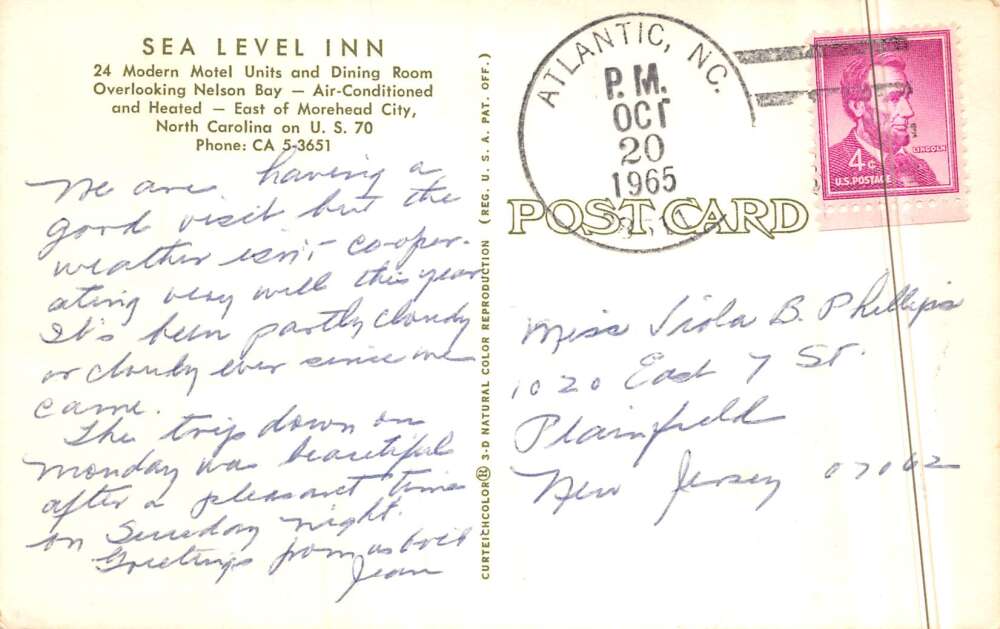 SEA LEVEL INN
24 Modern Motel Units and Dining Room
Overlooking Nelson Bay — Air-Conditioned
and Heated — East of Morehead City,
North Carolina on U. S. 70
Phone: CA 5-3651
We are having a
good visit but the
weather isn't co-oper-
ating very well this year
It's been partly cloudy
or cloudy ever since we
came.
The trip down on
Monday was beautiful
after a pleasant time
on Sunday night.
Greetings from us both
Jean
CURTEICHCOLOR® 3-D NATURAL COLOR REPRODUCTION (REG. U. S. A. PAT. OFF.)
ATLANTIC, NC.
P.M.
OCT
20
1965
LINCOLN
4c
U.S. POSTAGE
POST CARD
Miss Viola B. Phillips
1020 East 7 St.
Plainfield
New Jersey 07062